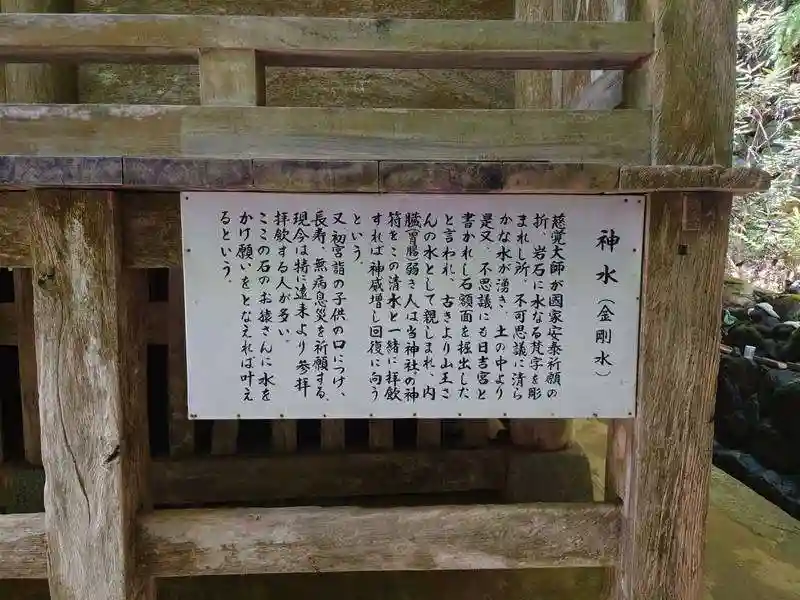 神水（金剛水）
慈覚大師が國家安泰祈願の
折、岩石に水なる梵字を彫
まれし所、不可思議に清ら
かな水が湧き、土の中より
是又、不思議にも日吉宮と
書かれし石額面を掘出した
と言われ、古きより山王さ
んの水として親しまれ、内
臓胃腸弱き人は当神社の神
符をこの清水と一緒に拝飲
すれば神威増し回復に向う
という。
又、初宮詣の子供の口につけ、
長寿、無病息災を祈願する。
現今は特に遠来より参拝
拝飲する人が多い。
ここの石のお猿さんに水を
かけ願いをとなえれば叶え
るという。